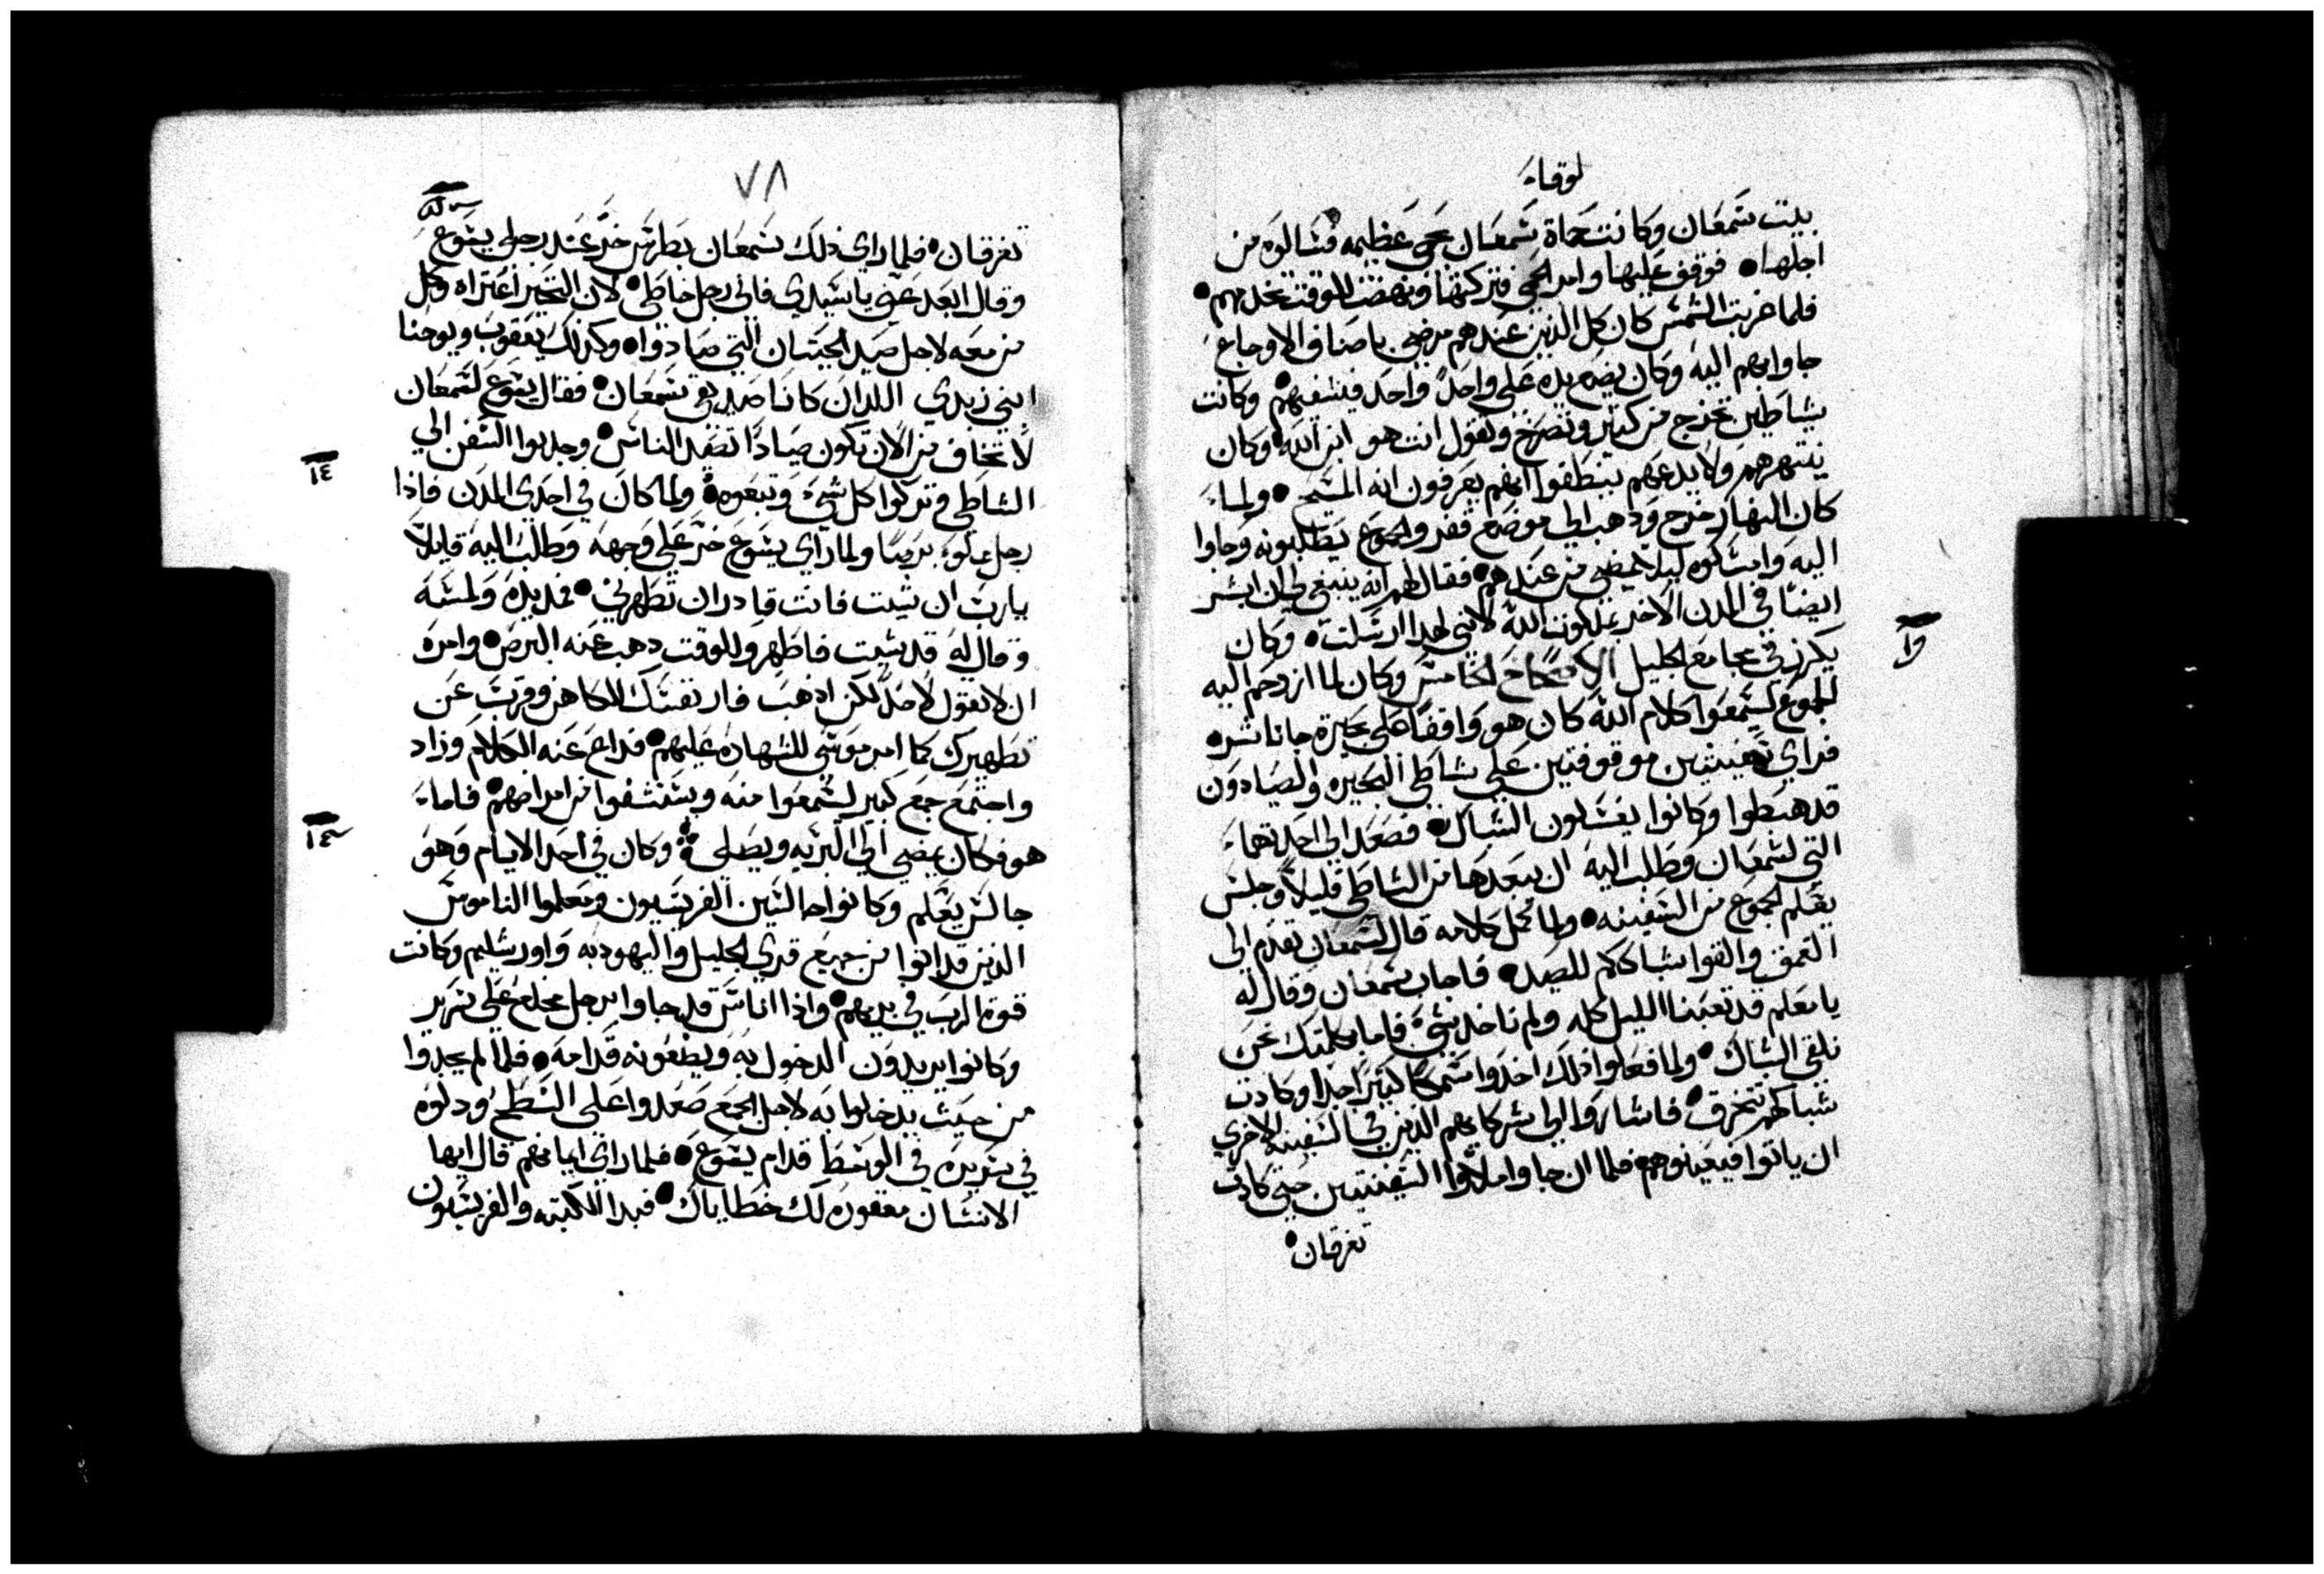 لوقا
بيت شمعان وكانت حماة شمعان بحمى عظيمه فسالوه من
اجلها • فوقف عليها وامر الحمى فتركتها ونهضت للوقت تخدمهم •
فلما غربت الشمس كان كل الذين عندهم مرضى باصناف الاوجاع
جاوا بهم اليه وكان يضع يده على واحد واحد فيشفيهم • وكانت
شياطين تخرج من كثير وتصرخ وتقول انت هو ابن الله • وكان
ينتهرهم ولا يدعهم ينطقوا انهم يعرفون انه المسيح • ولما
كان النهار خرج وذهب الى موضع قفر والجموع يطلبونه وجاوا
اليه وامسكوه ليلا يمضي من عندهم • فقال لهم انه ينبغي لي ان ابشر
ايضا في المدن الاخر بملكوت الله لانني لهذا ارسلت • وكان
يكرز في مجامع الجليل الاصحاح الخامس وكان لما ازدحم اليه
الجموع ليسمعوا كلام الله كان هو واقفا على بحيرة جاناشره
فراى سفينتين موقوفتين على شاطى البحيره والصيادون
قد هبطوا وكانوا يغسلون الشباك • فصعد الى احدتهما
التي لشمعان وطلب اليه ان يبعدها من الشاطى قليلا وجلس
يعلم الجموع من السفينه • ولما كمل كلامه قال لشمعان تقدم الى
العمق والقوا شباككم للصيد • فاجاب شمعان وقال له
يا معلم قد تعبنا الليل كله ولم ناخذ شي فاما بكلمتك نحن
نلقي الشباك • ولما فعلوا ذلك اخذوا سمكا كثيرا جدا وكادت
شباكهم تتخرق • فاشاروا الى شركايهم الذين في السفينه الاخرى
ان ياتوا فيعينوهم فلما ان جاوا ملاوا السفينتين حتى كادت
تغرقان •
١٥
٧٨
تغرقان • فلما راى ذلك شمعان بطرس خر عند رجلي يشوع
وقال ابعد عني يا سيدي فاني رجل خاطى • لان التحير اعتراه وكل
من معه لاجل صيد الحيتان التي صادوا • وكذلك يعقوب ويوحنا
ابني زبدي اللدان كانا صديقي شمعان • فقال يشوع لشمعان
لا تخاف من الان تكون صيادا تصيد الناس • وجدبوا السفن الى
الشاطى وتركوا كل شي وتبعوه ولما كان في احدى المدن فاذا
رجل مملوء برصا ولما راى يشوع خر على وجهه وطلب اليه قايلا
يارب ان شيت فانت قادر ان تطهرني • فمد يده ولمسه
وقال له قد شيت فاطهر وللوقت ذهب عنه البرص • وامره
ان لا يقول لاحد لكن اذهب فار نفسك للكاهن وقرب عن
تطهيرك كما امر موسى للشهاده عليهم • فداع عنه الكلام وزاد
واجتمع جمع كبير ليسمعوا منه ويستشفوا من امراضهم • فاما
هو فكان يمضي الى البريه ويصلي وكان في احد الايام وهو
جالس يعلم وكانوا جالسين الفريسيون ومعلموا الناموس
الذين قد اتوا من جميع قرى الجليل واليهوديه واورشليم وكانت
قوة الرب في بريهم • واذا اناس قد جاوا برجل مخلع على سرير
وكانوا يريدون الدخول به ويضعونه قدامه • فلما لم يجدوا
من حيث يدخلوا به لاجل الجمع صعدوا على السطح ودلوه
في سريره في الوسط قدام يشوع • فلما راى ايمانهم قال ايها
الانسان مغفوره لك خطاياك • فبدا الكتبه والفريسيون
١٤